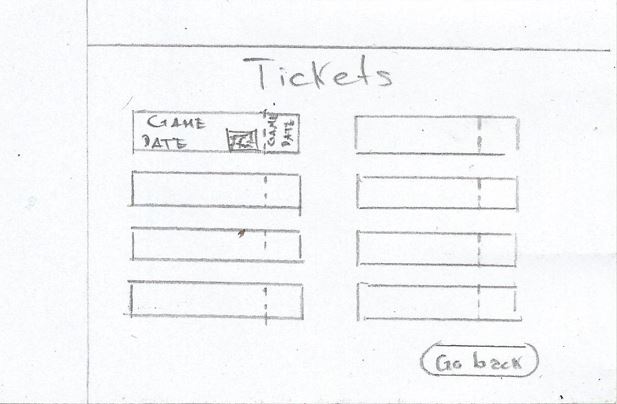 Tickets
GAME
DATE
GAME
DATE
Go back